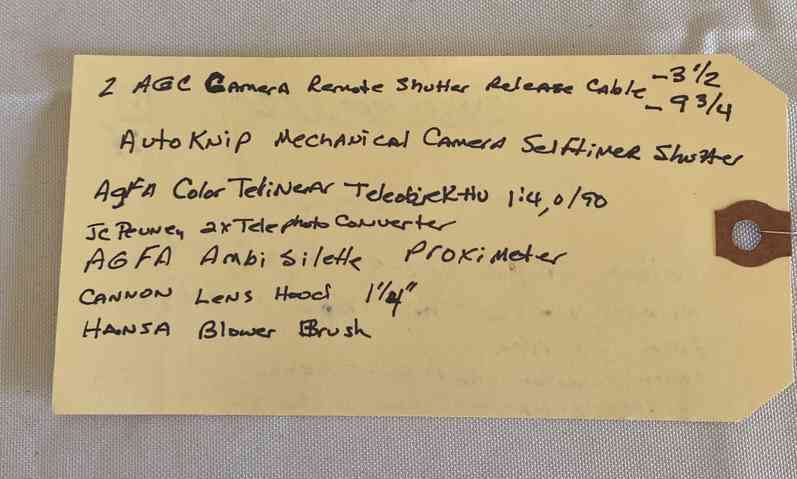 2 AGC Camera Remote Shutter Release Cable - 3 1/2
- 9 3/4
AutoKnip Mechanical Camera Selftimer Shutter
Agfa Color Telinear Teleobjektiv 1:4,0/90
JC Penney 2x Telephoto Converter
AGFA Ambi Silette Proximeter
CANNON Lens Hood 1 1/4"
HANSA Blower Brush